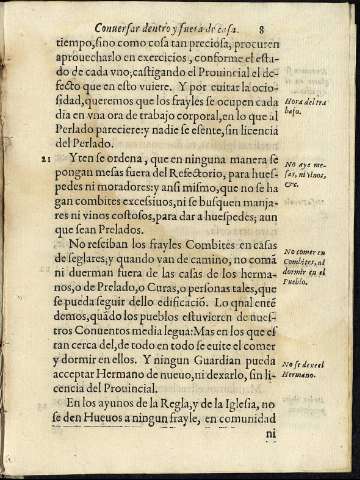 Conuersar dentro y fuera de casa. 8
tiempo, sino como cosa tan preciosa, procuren
aprouecharlo en exercicios, conforme el esta-
do de cada vno, castigando el Prouincial el de-
fecto que en esto vuiere. Y por euitar la ocio-
sidad, queremos que los frayles se ocupen cada
dia en vna ora de trabajo corporal, en lo que al
Perlado pareciere: y nadie se esente, sin licencia
del Perlado.
Hora del tra
bajo.
21 Yten se ordena, que en ninguna manera se
pongan mesas fuera del Refectorio, para hues-
pedes ni moradores: y ansi mismo, que no se ha
gan combites excessiuos, ni se busquen manja-
res ni vinos costosos, para dar a huespedes; aun
que sean Prelados.
No aye me-
sas, ni vinos,
&c.
No reciban los frayles Combites en casas
de seglares; y quando van de camino, no comã
ni duerman fuera de las casas de los herma-
nos, o de Prelado, o Curas, o personas tales, que
se pueda seguir dello edificaciõ. Lo qnal entẽ
demos, quãdo los pueblos estuuieren de nues-
tros Conuentos media legua: Mas en los que es
tan cerca del, de todo en todo se euite el comer
y dormir en ellos. Y ningun Guardian pueda
acceptar Hermano de nueuo, ni dexarlo, sin li-
cencia del Prouincial.
No comer en
Combites, ni
dormir en el
Pueblo.
No se dexe el
Hermano.
En los ayunos de la Regla, y de la Iglesia, no
se den Hueuos a ningun frayle, en comunidad
ni